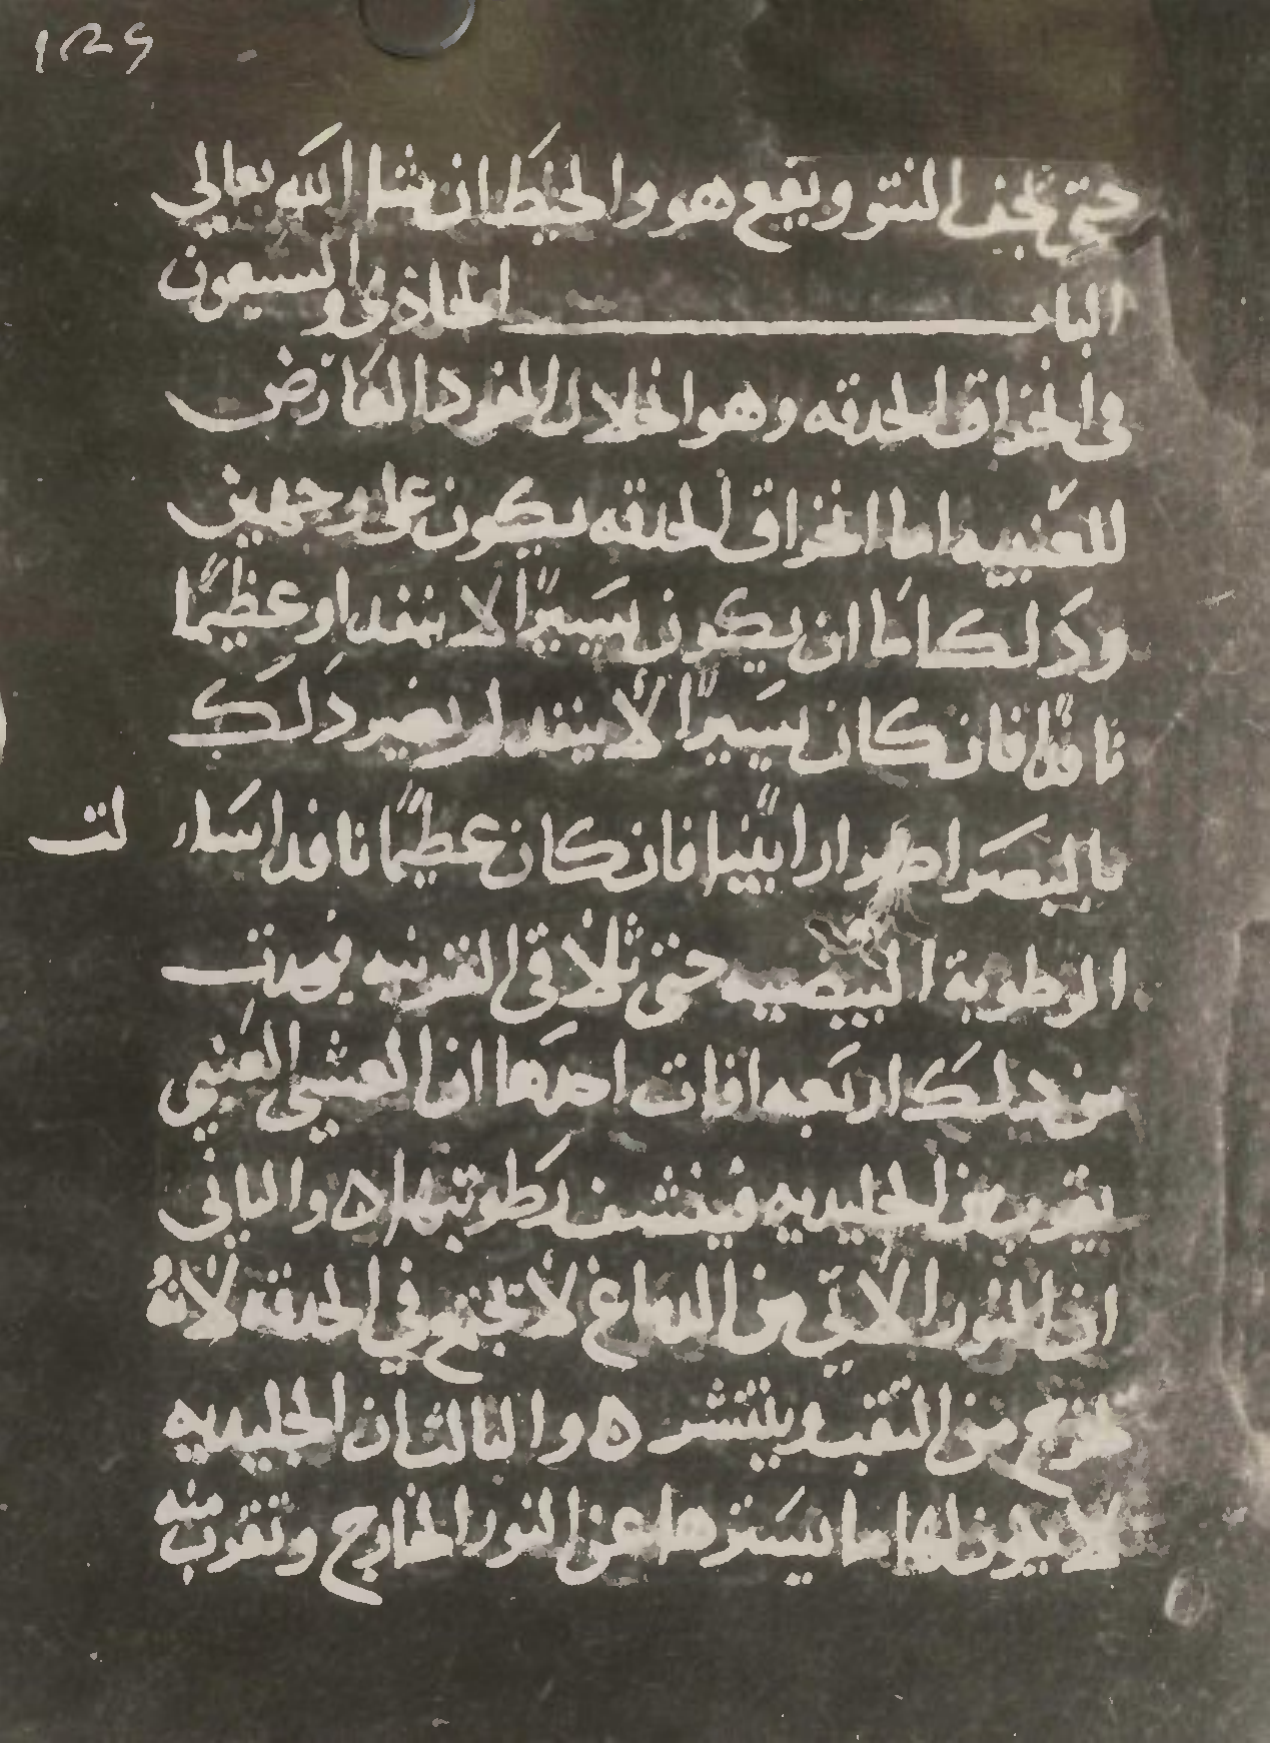 ١٢٩
حتى النتو ويقع هو والخيط ان شا الله تعالى
الباب الحادي والسبعون
في انخراق الحدقه وهو انحلال الفرد العارض
للعنبيه اما انخراق الحدقه يكون على وجهين
وذلك اما ان يكون يسيرًا لا ينفد او عظيمًا
نافدًا فان كان يسيرًا لا ينفد لم يضر ذلك
بالبصر اضرارا بينا فان كان عظيمًا نافدا سالت
الرطوبة البيضيه حتى تلاقي القرنيه
من ذلك اربعه افات احدها ان الغشي العنبي
يقرب من الجليديه فينشف رطوبتها ه والثاني
ان النور الاتي من الدماغ لا يجتمع في الحدقه لانهُ
يخرج من الثقب وينتشر ه والثالث ان الجليديه
لا يكون لها ما يسترها عن النور الخارج وتقرب منه